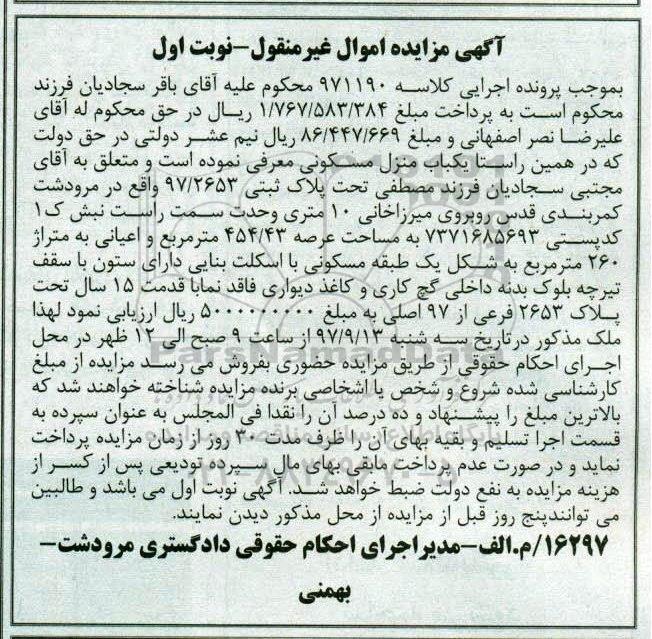 آگهی مزایده اموال غیرمنقول-نوبت اول
بموجب پرونده اجرایی کلاسه ۹۷۱۱۹۰ محکوم علیه آقای باقر سجادیان فرزند
محکوم است به پرداخت مبلغ ۱/۷۶۷/۵۸۳/۳۸۴ ریال در حق محکوم له آقای
علیرضا نصر اصفهانی و مبلغ ۸۶/۴۴۷/۶۶۹ ریال نیم عشر دولتی در حق دولت
که در همین راستا یکباب منزل مسکونی معرفی نموده است و متعلق به آقای
مجتبی سجادیان فرزند مصطفی تحت پلاک ثبتی ۹۷/۲۶۵۳ واقع در مرودشت
کمربندی قدس روبروی میرزاخانی ۱۰ متری وحدت سمت راست نبش ک۱
کدپستی ۷۳۷۱۶۸۵۶۹۳ به مساحت عرصه ۴۵۴/۴۳ مترمربع و اعیانی به متراژ
۲۶۰ مترمربع به شکل یک طبقه مسکونی با اسکلت بنایی دارای ستون با سقف
تیرچه بلوک بدنه داخلی گچ کاری و کاغذ دیواری فاقد نمابا قدمت ۱۵ سال تحت
پلاک ۲۶۵۳ فرعی از ۹۷ اصلی به مبلغ ۵۰۰۰۰۰۰۰۰۰ ریال ارزیابی نمود لهذا
ملک مذکور درتاریخ سه شنبه ۹۷/۹/۱۳ از ساعت ۹ صبح الی ۱۲ ظهر در محل
اجرای احکام حقوقی از طریق مزایده حضوری بفروش می رسد مزایده از مبلغ
کارشناسی شده شروع و شخص یا اشخاصی برنده مزایده شناخته خواهند شد که
بالاترین مبلغ را پیشنهاد و ده درصد آن را نقدا فی المجلس به عنوان سپرده به
قسمت اجرا تسلیم و بقیه بهای آن را ظرف مدت ۳۰ روز از زمان مزایده پرداخت
نماید و در صورت عدم پرداخت مابقی بهای مال سپرده تودیعی پس از کسر از
هزینه مزایده به نفع دولت ضبط خواهد شد. آگهی نوبت اول می باشد و طالبین
می توانندپنج روز قبل از مزایده از محل مذکور دیدن نمایند.
۱۶۲۹۷/م.الف-مدیراجرای احکام حقوقی دادگستری مرودشت-
بهمنی
ParsNamadData